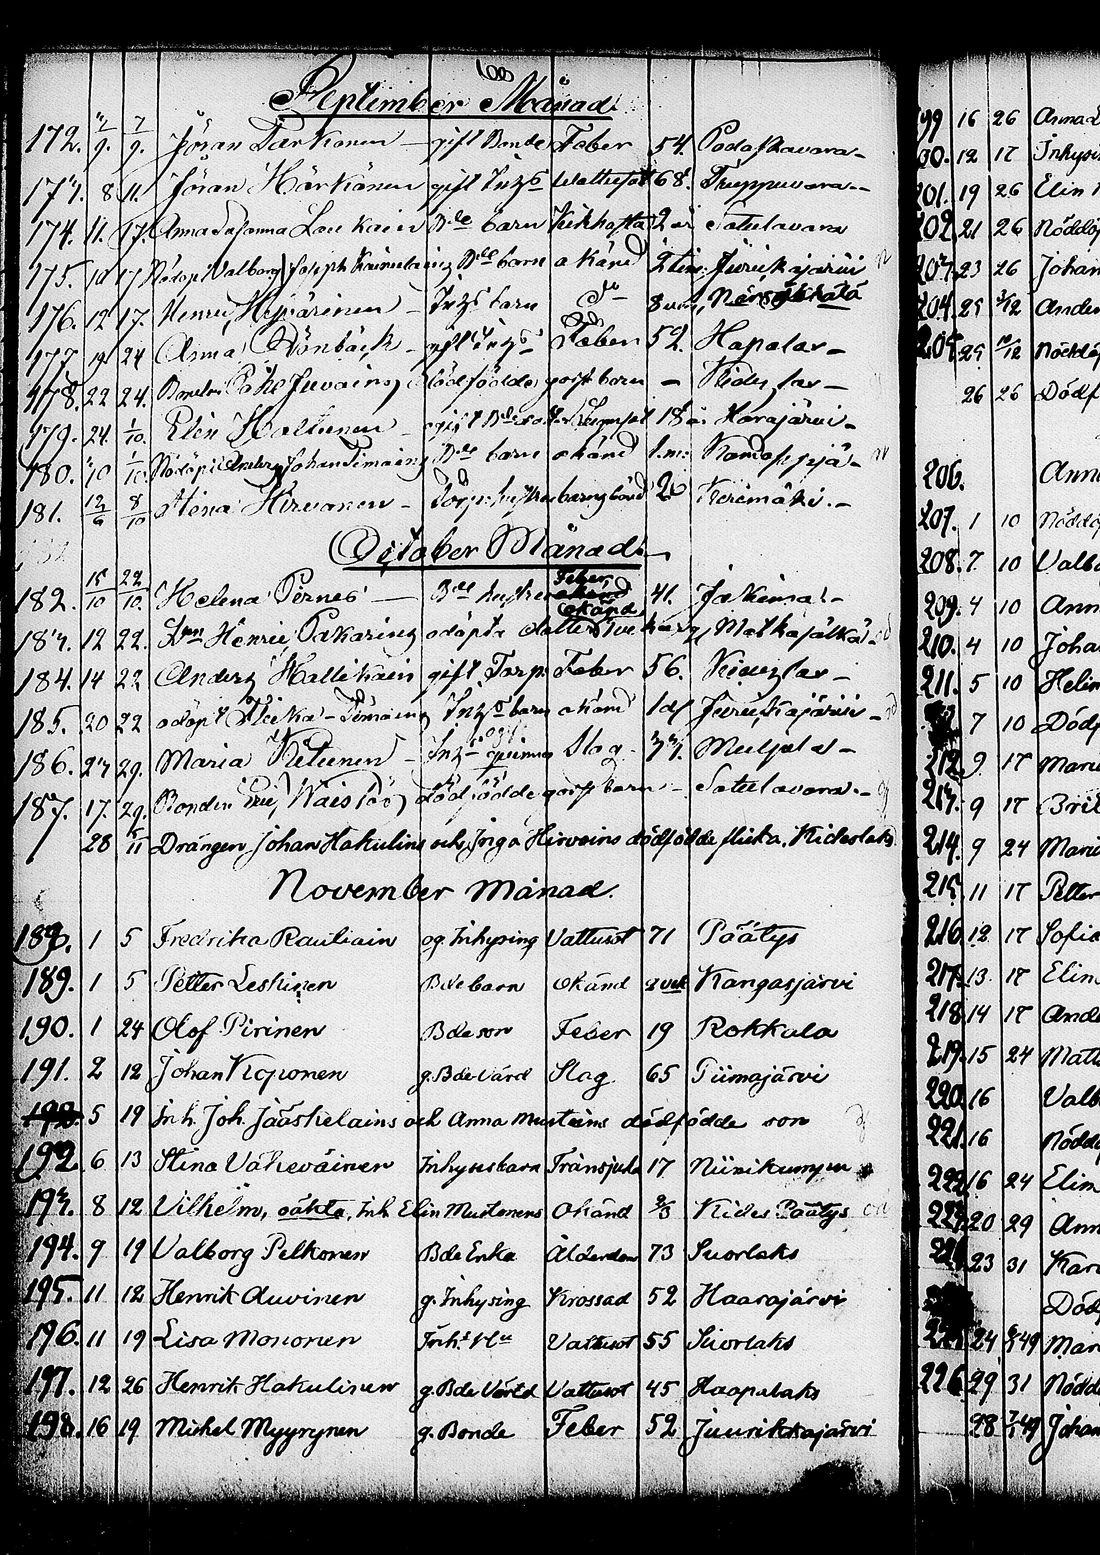 100
September Månad.
172. 4/9. 7/9. Jöran Tarkonen – gift Bonde Feber 54. Potoskavara –
173. 8 11. Jöran Härkönen gift Inhs Wattusot 68. Truppuvara –
174. 11. 17. Anna Susanna Loukain Bde barn Kikhosta 2 år Satulavara
175. 10 17 Nödöpt Valborg Joseph Kainulaing Bde barn okänd 2 tim. Jurikajärvi
176. 12 17. Henric Hyvärinen – Inhs barn do – 8 Närsäkkälä
177. 19 24 Anna Dönbäck – gift Inhs Feber 52. Hapalax –
178. 22 24. Juvains dödfödde goss barn – Kides lax –
179. 24. 1/10. Elin Haltunen – gift 18 Harajärvi –
180. 1/10. Nödöpt Johan Timains Bde barn okänd 1 m:
181. 12/6 8/10 Stina Hirvonen – Torp: hustru barnsbörd 20 Kerimäki. –
October Månad.
182. 15/10 22/10. Helena Pernes – Bde hustru Feber okänd 41.
183. 12 22. Henric Pakarins odöpta dotter Matkajälkä –
184. 14 22 Anders Hallikain gift Torp. Feber 56. Kideslax –
185. 20 22 odöpt flicka – Timains Inhs barn okänd 1 d Juurikajärvi –
186. 23 29. Maria Ketunen – Inhs qvinna Slag. 73. Muljula –
187. 17. 29. Bonden Eric dödfödde goss barn – Satulavara –
28 5/11 Drängen Johan Hakulins och Inga Hirvoins dödfödde flicka. Kideslaks
November månad.
188. 1 5 Fredrika Rautiain og. Inhysing Vattusot 71 Päätys
189. 1 5 Petter Leskinen Bde barn okänd 2 vek Kangasjärvi
190. 1 24 Olof Pirinen Bde son Feber 19 Rokkala
191. 2 12 Johan Koponen g. Bde Värd Slag. 65 Piimajärvi
5 19 Inh. Joh. Jääskelains och Anna Mustoins dödfödde son
192 6 13 Stina Väkeväinen Inhyses barn Fransjuka 17 Niirikumpu
193. 8 12 Vilhelm, oäkta, Inh. Elin Mustonens Okänd 2/3 Kides Päätys
194. 9 19 Valborg Pelkonen Bde Enka Ålderdom 73 Suorlaks
195. 11 12 Henrik Auvinen g. Inhysing Krossad 52 Haarajärvi
196. 11 19 Lisa Mononen Inhs Hu Vattusot 55 Suorlaks
197. 12 26 Henrik Hakulinen g. Bde Värd Vattusot 45 Haapalaks
198. 16 19 Mickel Myyrynen g. Bonde Feber 52 Juurikkajärvi
199 16 26 Anna
200. 12 17 Inhysin
201. 19 26 Elin
202. 21 26 Nöddöp
203. 23 26 Johan
204. 25 3/12 Ander
205. 25 10/12 Nöddöp
26 26 Dödf
206. Anna
207. 1 10 Nöddöp
208. 7 10 Valbo
209. 4 10 Ann
210. 4 10 Joha
211. 5 10 Helen
7 10 Dödf
212. 9 17 Mari
213. 9 17 Bri
214. 9 24 Mari
215. 11 17 Petter
216. 12 17 Sofia
217. 13 17 Elin
218. 14 17 And
219. 15 24 Matt
220. 16 Valb
221. 16 Nöddö
222. 16 24 Elin
223. 20 29 Ann
23 31 Kar
Död
225. 24 6/1 49 Mar
226. 29 31 Nödd
28 7/1 49 Johan